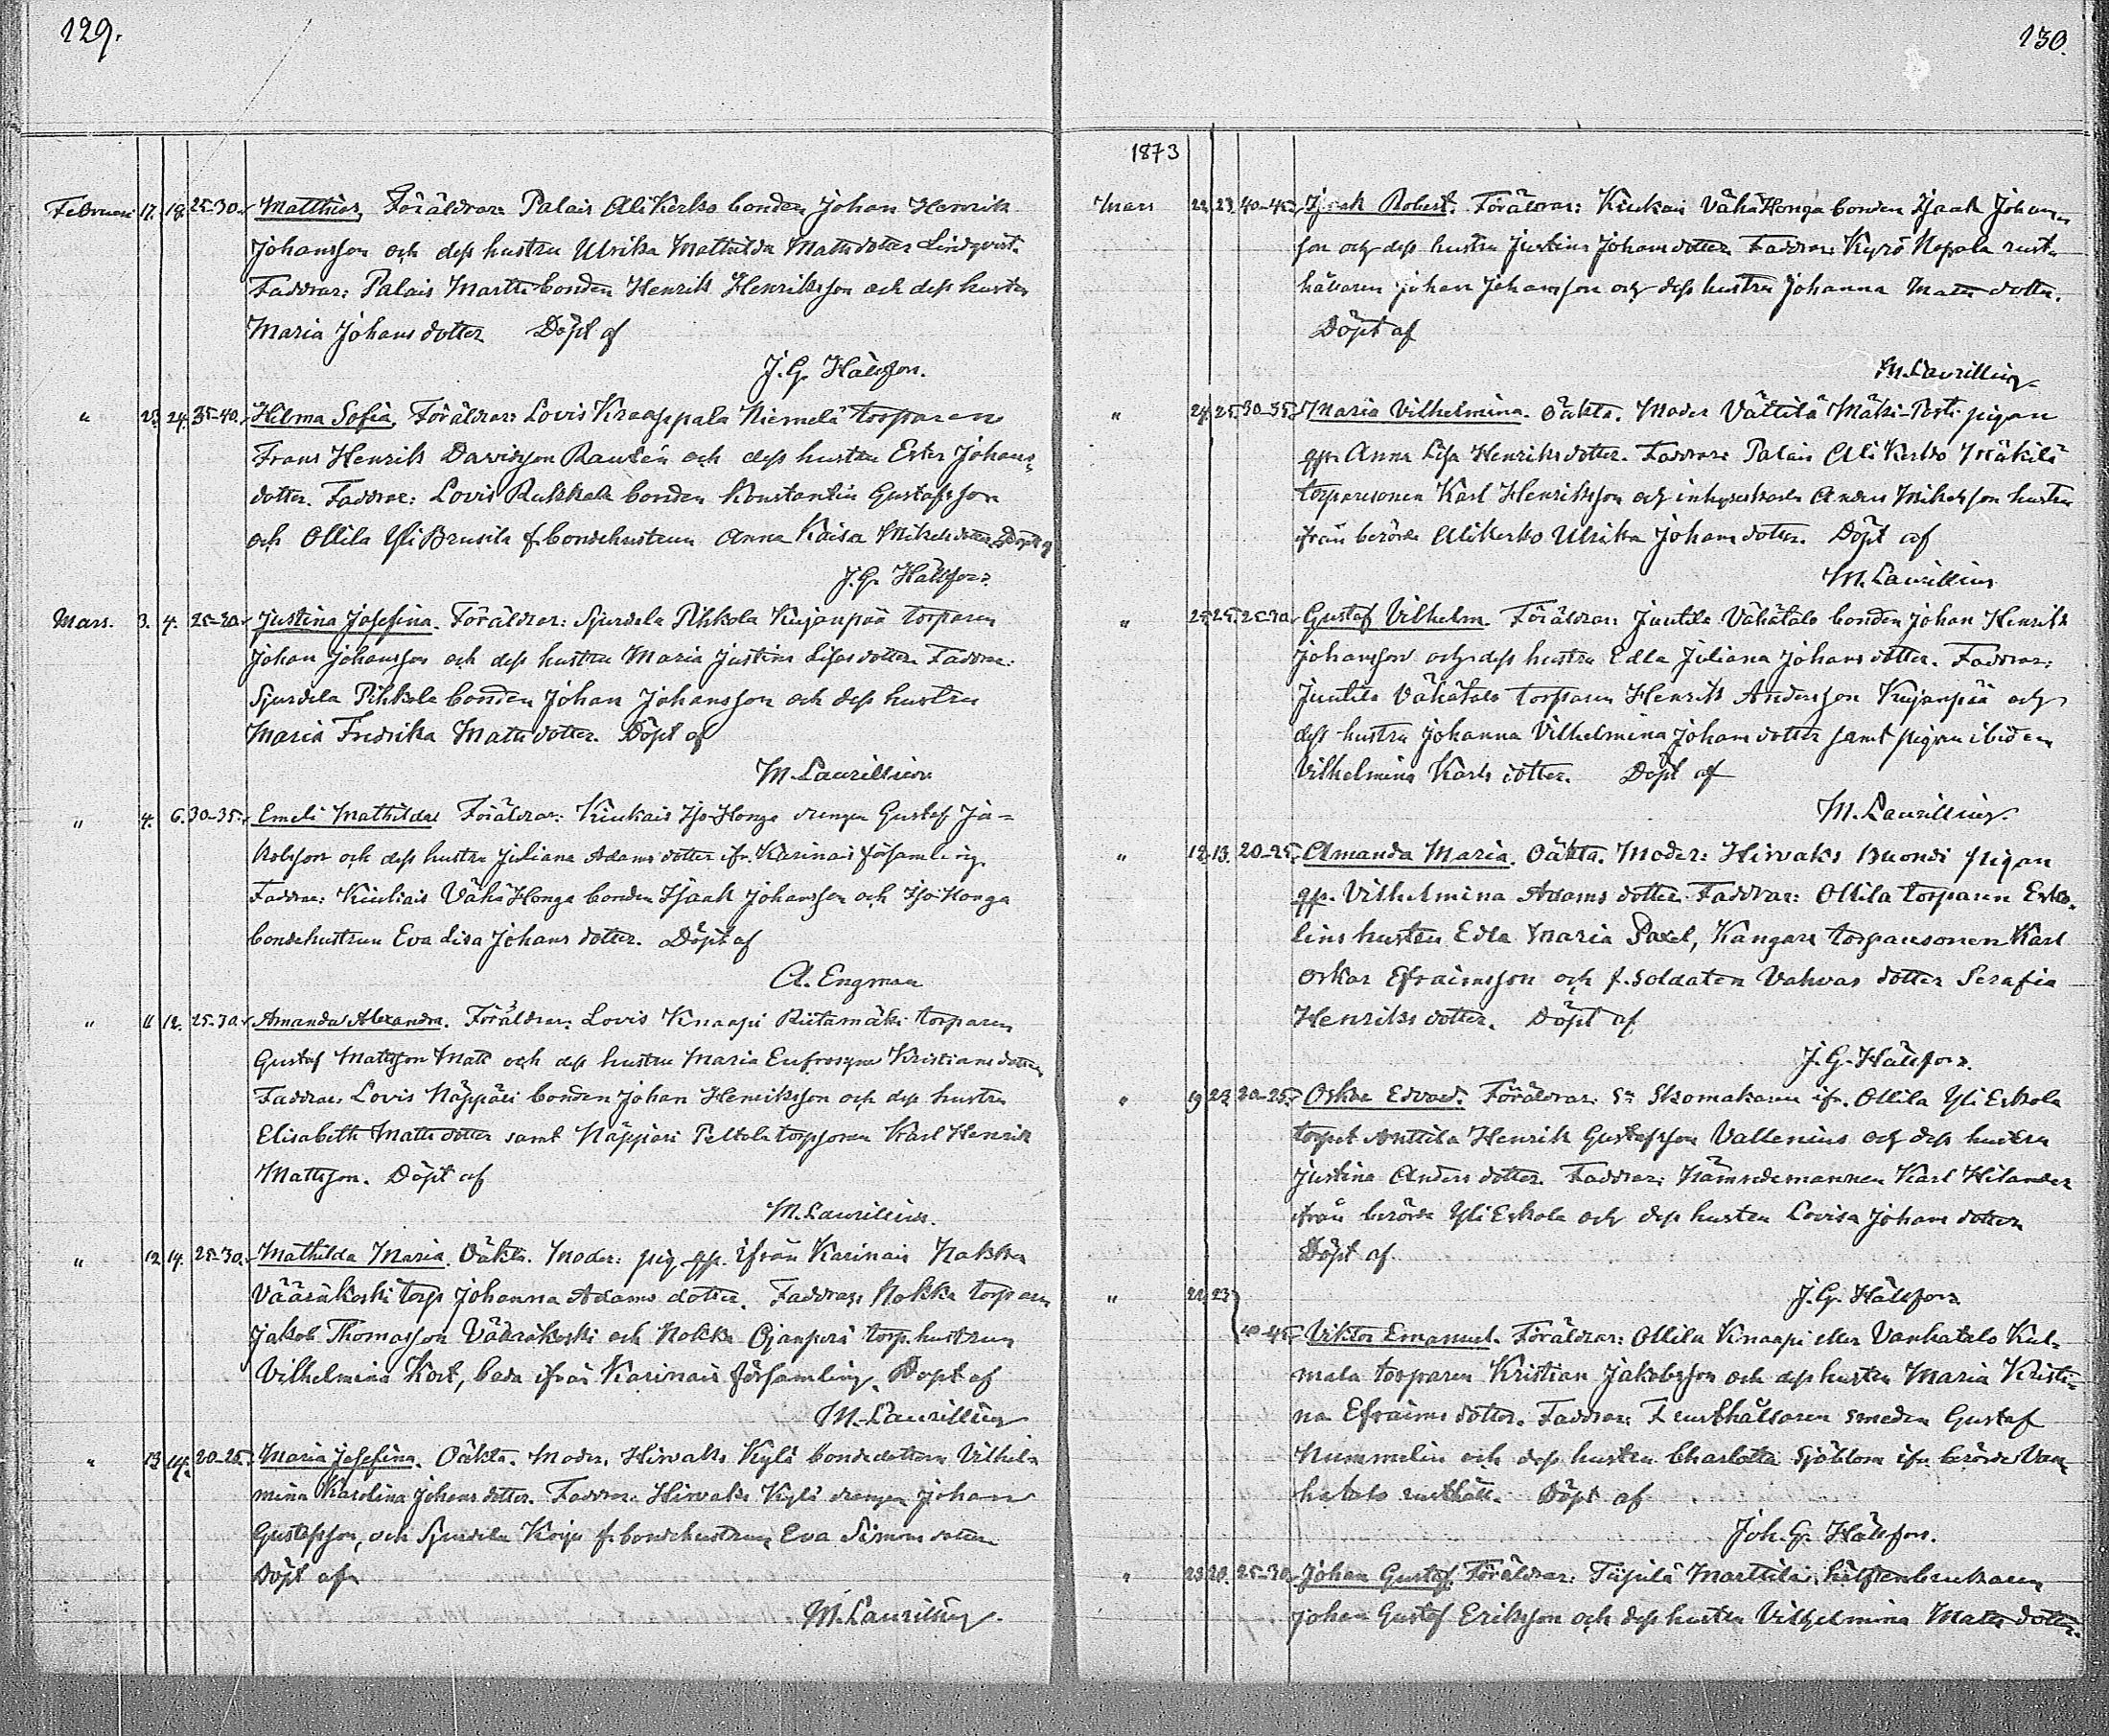 129.
Februari 17. 18. 25-30. Matthias, Föräldrar: Palais AliKerko bonden Johan Henrik
Johansson och dess hustru Ulrika Mathilda Mattsdotter Lindqvist.
Faddrar: Palais Martti bonden Henrik Henriksson och dess hustru
Maria Johansdotter Döpt af
J. G. Hälsfors.
" 23. 24. 35-40. Hilma Sofia, Föräldrar: Lovis Knaappala Niemelä torparen
Frans Henrik Davidsson Rautén och dess hustru Ester Johans-
dotter. Faddrar: Lovis Rukkala bonden Konstantin Gustafsson
och Ollila Yli Brusila f. bondehustrun Anna Kaisa Mikelsdotter. Döpt af
J. G. Hälsfors.
Mars. 3. 4. 25-30. Justina Josefina. Föräldrar: Sjurdela Pihkola Kujanpää torparen
Johan Johansson och dess hustru Maria Justina Lisasdotter. Faddrar:
Sjurdela Pihkola bonden Johan Johansson och dess hustru
Maria Fredrika Mattsdotter. Döpt af
M. Laurillius
" 4. 6. 30-35. Emeli Mathilda. Föräldrar: Kiukais IsoHonga drengen Gustaf Ja-
kobsson och dess hustru Juliana Adamsdotter ifr. Karinais församling.
Faddrar: Kiukais VähäHonga bonden Isaak Johansson och IsoHonga
bondehustrun Eva Lisa Johansdotter. Döpt af
A. Engman
" 11. 12. 25-30. Amanda Alexandra. Föräldrar: Lovis Knaapi Riitamäki torparen
Gustaf Mattsson Matt och dess hustru Maria Eufrosyna Kristiansdotter
Faddrar: Lovis Näppäri bonden Johan Henriksson och dess hustru
Elisabeth Mattsdotter samt Näppäri Peltola torpsonen Karl Henrik
Mattsson. Döpt af
M. Laurillius.
" 12. 14. 25-30. Mathilda Maria. Oäkta. Moder: pig. qp. ifrån Karinais Nokka
Vääräkoski torp Johanna Adams dotter. Faddrar: Nokka torparen
Jakob Thomasson Vääräkoski och Nokka Ojanperä torp. hustrun
Vilhelmina Kort, båda ifrån Karinais församling. Döpt af
M. Laurillius
" 13. 14. 20-25. Maria Josefina. Oäkta. Moder, Hirvaks Kylä bondedottern Vilhel-
mina Karolina Johansdotter. Faddrar: Hirvaks Kylä drengen Johan
Gustafsson, och Sjurdela Koiju f. bondehustrun Eva Simonsdotter
Döpt af
M. Laurillius.
130.
1873
Mars 22. 23. 40-45. Isaak Robert. Föräldrar: Kiukais VähäHonga bonden Isaak Johans-
son och dess hustru Justina Johansdotter. Faddrar: Kyrö Nopala rust-
hållaren Johan Johansson och dess hustru Johanna Mattsdotter.
Döpt af
M. Laurillius
" 24. 25. 30-35. Maria Vilhelmina. Oäkta. Moder Vättilä Mäki-Perti pigan
qp. Anna Lisa Henriksdotter. Faddrar: Palais AliKerko Mäkilä
torparesonen Karl Henriksson och inhyseskarlen Anders Mikelsson hustru
ifrån berörde AliKerko Ulrika Johansdotter. Döpt af
M. Laurillius
" 25. 25. 25-30. Gustaf Vilhelm. Föräldrar: Juntila Vähätalo bonden Johan Henrik
Johansson och dess hustru Edla Juliana Johansdotter. Faddrar:
Juntila Vähätalo torparen Henrik Andersson Kujanpää och
dess hustru Johanna Vilhelmina Johansdotter samt pigan ibidem
Vilhelmina Karls dotter. Döpt af
M. Laurillius.
" 12. 13. 20-25. Amanda Maria. Oäkta. Moder: Hirvaks Buondi pigan
qp. Vilhelmina Adams dotter. Faddrar: Ollila torparen Esko-
lins hustru Edla Maria Paxel, Kangare torparesonen Karl
Oskar Efraimsson och f. soldaten Vahvas dotter Serafia
Henriks dotter. Döpt af
J. G. Hälsfors.
" 19. 23. 20-25. Oskar Edvard. Föräldrar: Sn Skomakaren ifr. Ollila Yli Eskola
torpet Anttila Henrik Gustafsson Vallenius och dess hustru
Justina Anders dotter. Faddrar: Nämndemannen Karl Hilander
ifrån berörde Yli Eskola och dess hustru Lovisa Johans dotter
Döpt af
J. G. Hälsfors
" 22. 23. 40-45. Viktor Emanuel. Föräldrar: Ollila Knaapi eller Vanhatalo Kul-
mala torparen Kristian Jakobsson och dess hustru Maria Kristi-
na Efraims dotter. Faddrar: F. rusthållaren smeden Gustaf
Nummelin och dess hustru Charlotta Sjöblom ifr. berörde Van-
hatalo rusthåll. Döpt af
Joh. G. Hälsfors.
" 23. 28. 25-30. Johan Gustaf. Föräldrar: Tüjülä Marttila hälftenbrukaren
Johan Gustaf Eriksson och dess hustru Vilhelmina Mattsdotter.